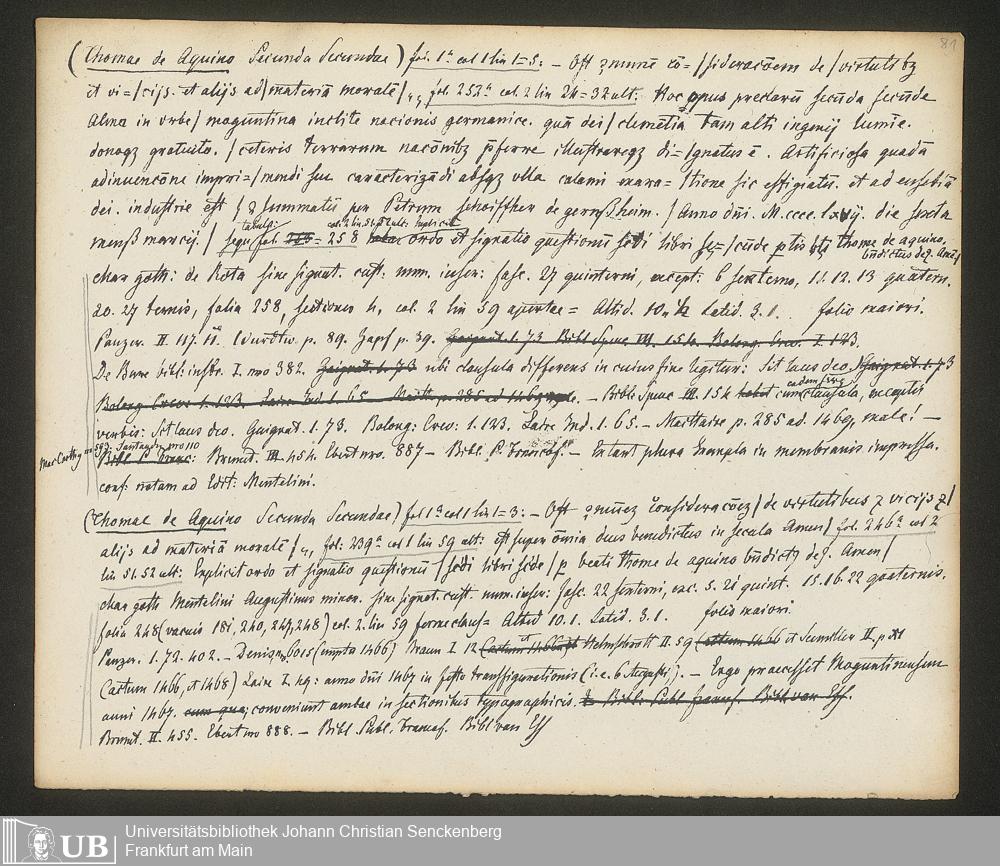 81
(Thomae de Aquino Secunda Secundae) fol. 1a col 1 lin 1=5: – Ost ꝯmunē cō= /sideracōem de /virtutibꝫ
et vi= /cijs. et alijs ad /materiā moralē /,, fol. 257a col. 2 lin 24=32 ult: Hoc opus preclarū secūda secūde
Alma in vrbe / maguntina inclite nacionis germanice. quā dei / clemētia tam alti ingenij lumīe.
donoqꝫ gratuito. / ceteris terrarum nacōnibꝫ p̄ferre illustrareqꝫ di= /gnatus ē. Artificiosa quadā
adinuencōne impri= /mendi seu caracterizādi absqꝫ vlla calami exara= /tione sic effigiatū. et ad eusebiā
dei. industrie est / ꝯsummatū per Petrum schoiffher de gernßheim. / Anno dn̄i. M.cccc.lxvij. die sexta
menß marcij. / sequ. fol. 258 tabula: col. 2 lin. 51.52 ult: Explicit ordo et signatio questionū sc̄di libri se= /cūde ptis bt̄i thome de aquino.
bn̄dictus de9. Amē/
char goth: de Rota sine signat. cust: num. inser: fasc. 27 quinterni, except: 6 sexterno, 11. 12. 13 quatern.
20. 27 ternis, folia 258, sectiones 4, col. 2 lin 59 apertae = Altid. 10 1/2 Latid. 3.1. folio maiori.
Panzer. II. 117. 11. Würdtw. p. 89. Zapf p. 39. Gaignat. 1. 73 Bibl Spenc III. 154. Bolong. Crev. I. 123.
De Bure bibl: instr. I. nro 382. Gaignat. 1. 73 ubi clausula differens in cuius fine legitur: Sit laus deo. Gaignat. 1. 73
Bolong Crev. 1. 123. Laire Ind. 1. 65 Mait. p. 285 ad 1469 – Bibl. Spenc III. 154 cum eadem clausula, exceptis
verbis: Sit laus deo. Gaignat. 1. 73. Bolong: Crev: 1. 123. Laire Ind. 1. 65. – Maittaire p. 285 ad. 1469, male! –
Mac Carthy nro 583: Santander nro 110 Bibl. P. Franc: Brunet. III. 454. Ebert nro. 887 – Bibl. P. Francof. – Extant plura Exempla in membranis impressa.
conf: notam ad Edit: Mentelini.
(Thomae de Aquino Secunda Secundae) fol 1a col 1 lin 1=3: – Ost ꝯmunez consideracōez / de virtutibus ⁊ vicijs ⁊ /
alijs ad materiā moralē /,, fol: 239a col 1 lin 59 ult: est super om̄ia deus benedictus in secula Amen / fol. 246a col 2
lin 51. 52 ult: Explicit ordo et signatio questionū / sc̄di libri sc̄de / p beati thome de aquino bn̄dictꝫ de9. Amen /
char goth Mentelini Augustinus minor. sine signat. cust: num. inser: fasc. 22 sexterni, exc. 5. 21 quint. 15. 16. 22 quaternis.
folia 248 (vacuis 181, 240, 247, 248) col. 2. lin 59 ferme claus = Altid 10. 1. Latid. 3. 1. folio maiori.
Panzer. 1. 72. 402. – Denis p. 6015 (empto 1466) Braun I. 12 (Castum 1466) et Helmschrott II. 59 (attem. 1466 et Seemiller II, p. XI
Castum 1466, et 1468) Laire I. 49: anno dn̄i 1467 in festo transfigurationis (i. e. 6 Augusti). – Ergo praecessit Moguntinensem
anni 1467. cum qua, conveniunt ambae in sectionibus typographicis. In Bibl. Publ francof. Bibl van Eß.
Brunet. II. 455. Ebert nro 888. – Bibl. Publ. Francof. Bibl van Eß
UB
Universitätsbibliothek Johann Christian Senckenberg
Frankfurt am Main